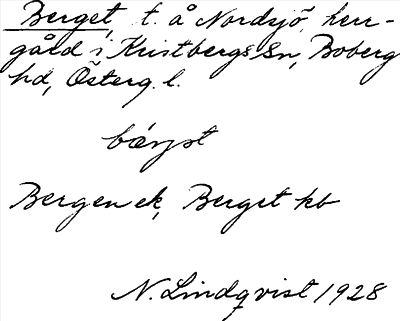 Berget, t. å Nordsjö, herr-
gård i Kristbergs sn, Boberg
hd, Österg. l.
Bergen ek, Berget kb
N. Lindqvist 1928